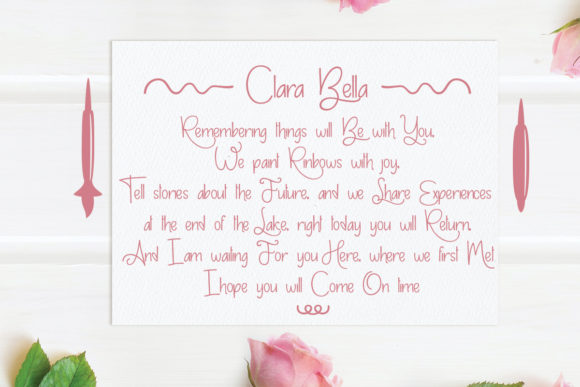 Clara Bella
Remembering things will Be with You.
We paint Rinbows with joy.
Tell stories about the Future. and we Share Experiences
at the end of the Lake. right today you will Return.
And I am waiting For you Here. where we first Met
I hope you will Come On time